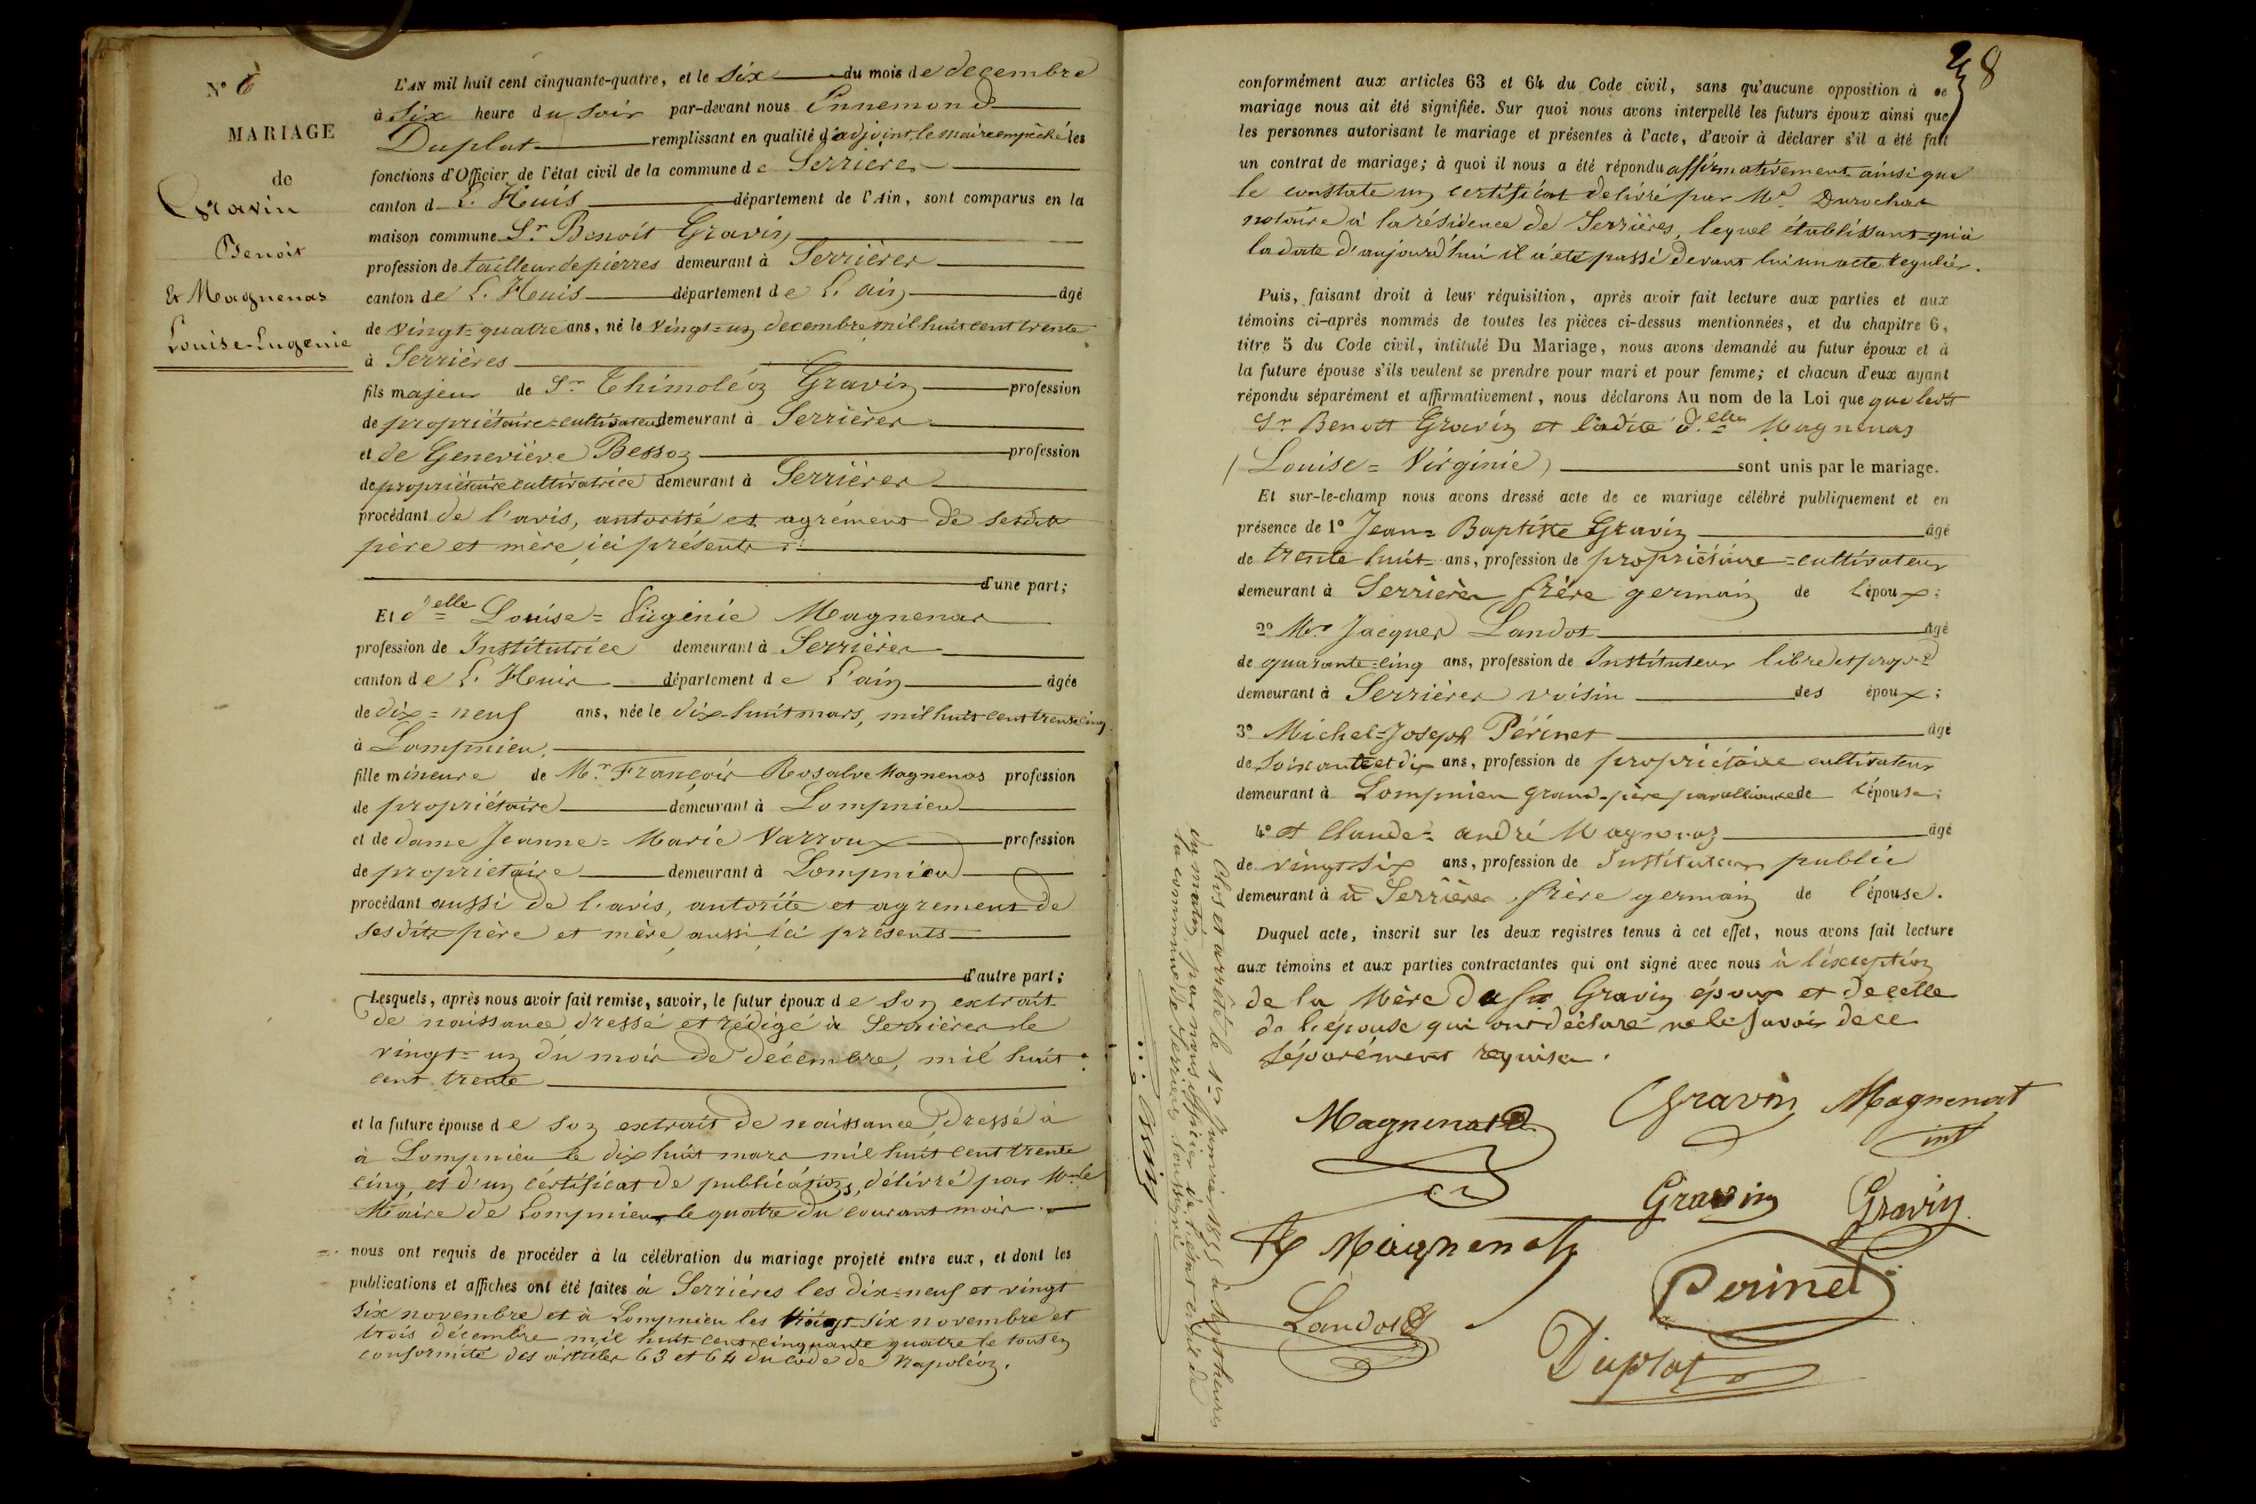 N° 6
MARIAGE
de
Gravin
Benoit
Et Magnenas
Louise-Eugenie
L'AN mil huit cent cinquante-quatre, et le six du mois de decembre
à six heure du soir par-devant nous Ennemond
Duplat remplissant en qualité d'adjoint, le maire empêché les
fonctions d'Officier de l'état civil de la commune de Serrières
canton d L'Huis département de l'Ain, sont comparus en la
maison commune Sr Benoit Gravin
profession de tailleur de pierres demeurant à Serrières
canton de L'Huis département de L'ain âgé
de vingt=quatre ans, né le vingt=un decembre mil huit cent trente
à Serrières
fils majeur de Sr Thimoléon Gravin profession
de propriétaire=cultivateur demeurant à Serrières
et de Geneviève Besson profession
de propriétaire cultivatrice demeurant à Serrières
procédant de l'avis, autorité et agrément de sesdits
père et mère, ici présents
d'une part;
Et delle Louise=Eugénie Magnenas
profession de Institutrice demeurant à Serrières
canton de L'Huis département de L'ain âgée
de dix=neuf ans, née le dix-huit mars, mil huit cent trente cinq
à Lompnieu
fille mineure de Mr François Rosalve Magnenas profession
de propriétaire demeurant à Lompnieu
et de dame Jeanne=Marie Varroux profession
de propriétaire demeurant à Lompnieu
procédant aussi de l'avis, autorité et agrement de
sesdits père et mère, aussi ici présents
d'autre part;
Lesquels, après nous avoir fait remise, savoir, le futur époux de son extrait
de naissance dressé et rédigé à Serrières le
vingt=un du mois de décembre, mil huit
cent trente
et la future épouse de son extrait de naissance, dressé à
à Lompnieu le dix huit mars mil huit cent trente
cinq, et d'un certificat de publications, délivré par Mr le
Maire de Lompnieu, le quatre du courant mois
nous ont requis de procéder à la célébration du mariage projeté entre eux, et dont les
publications et affiches ont été faites à Serrières les dix=neuf et vingt
six novembre et à Lompnieu les vingt-six novembre et
trois décembre mil huit cent cinquante quatre le tout en
conformité des articles 63 et 64 du Code de Napoléon.
8
conformément aux articles 63 et 64 du Code civil, sans qu'aucune opposition à ce
mariage nous ait été signifiée. Sur quoi nous avons interpellé les futurs époux ainsi que
les personnes autorisant le mariage et présentes à l'acte, d'avoir à déclarer s'il a été fait
un contrat de mariage; à quoi il nous a été répondu affirmativement ainsi que
le constate un certificat delivré par Me Durochat
notaire à la résidence de Serrières, lequel établissant qu'à
la date d'aujourd'hui il a été passé devant lui un acte regulier.
Puis, faisant droit à leur réquisition, après avoir fait lecture aux parties et aux
témoins ci-après nommés de toutes les pièces ci-dessus mentionnées, et du chapitre 6,
titre 5 du Code civil, intitulé Du Mariage, nous avons demandé au futur époux et à
la future épouse s'ils veulent se prendre pour mari et pour femme; et chacun d'eux ayant
répondu séparément et affirmativement, nous déclarons Au nom de la Loi que que ledit
Sr Benoit Gravin et ladite delle Magnenas
(Louise=Virginie) sont unis par le mariage.
Et sur-le-champ nous avons dressé acte de ce mariage célébré publiquement et en
présence de 1° Jean=Baptiste Gravin âgé
de trente huit ans, profession de propriétaire=cultivateur
demeurant à Serrières frère germain de l'époux;
2° Mr Jacques Landot âgé
de quarante=cinq ans, profession de Instituteur libre et propre
demeurant à Serrières voisin des époux;
3° Michel=Joseph Périnet âgé
de soixante et dix ans, profession de propriétaire cultivateur
demeurant à Lompnieu grand-père par alliance de l'épouse;
4° et Claude=andré Magnenas âgé
de vingt-six ans, profession de Instituteur public
demeurant à à Serrières, frère germain de l'épouse.
Duquel acte, inscrit sur les deux registres tenus à cet effet, nous avons fait lecture
aux témoins et aux parties contractantes qui ont signé avec nous à l'exception
de la Mère du Sr Gravin époux et de celle
de l'épouse qui ont déclaré ne le savoir de ce
séparément requises.
Magnenat Gravin Magnenat
int
Gravin Gravin
Magnenat
Perinet
Landot
Duplat
Clos et arrêté le 1er janvier 1855 à sept heures
du matin, par nous officier de l'état civil de
la commune de Serrières soussigné